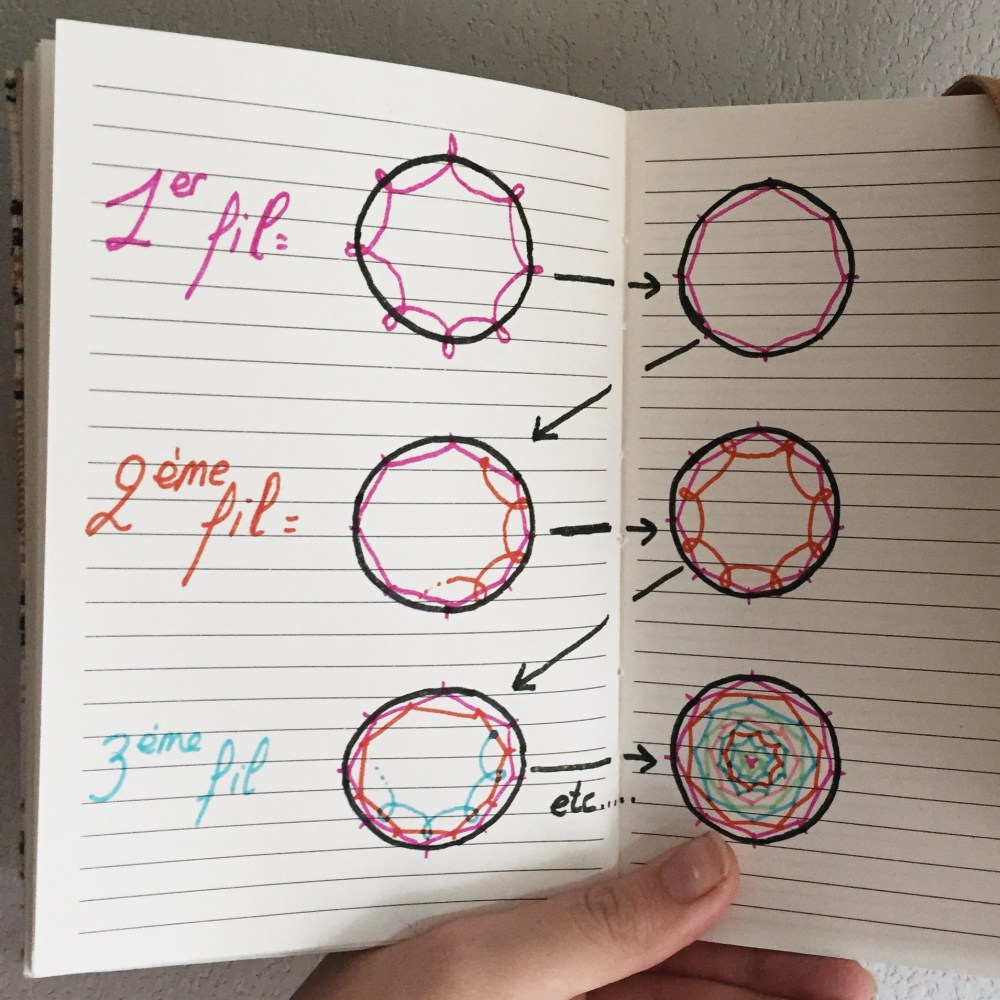 1er fil =
2ème fil =
3ème fil
etc.....